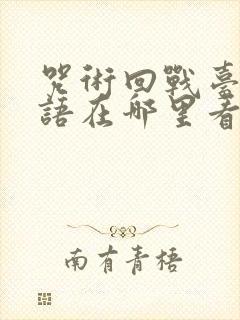 咒術回戰臺
語在哪里看
南有青梧